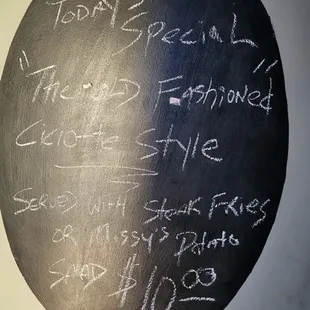 Today's
Special
"The Old Fashioned"
Style
Served with Steak Fries
or Missy's Potato
Salad $10.00